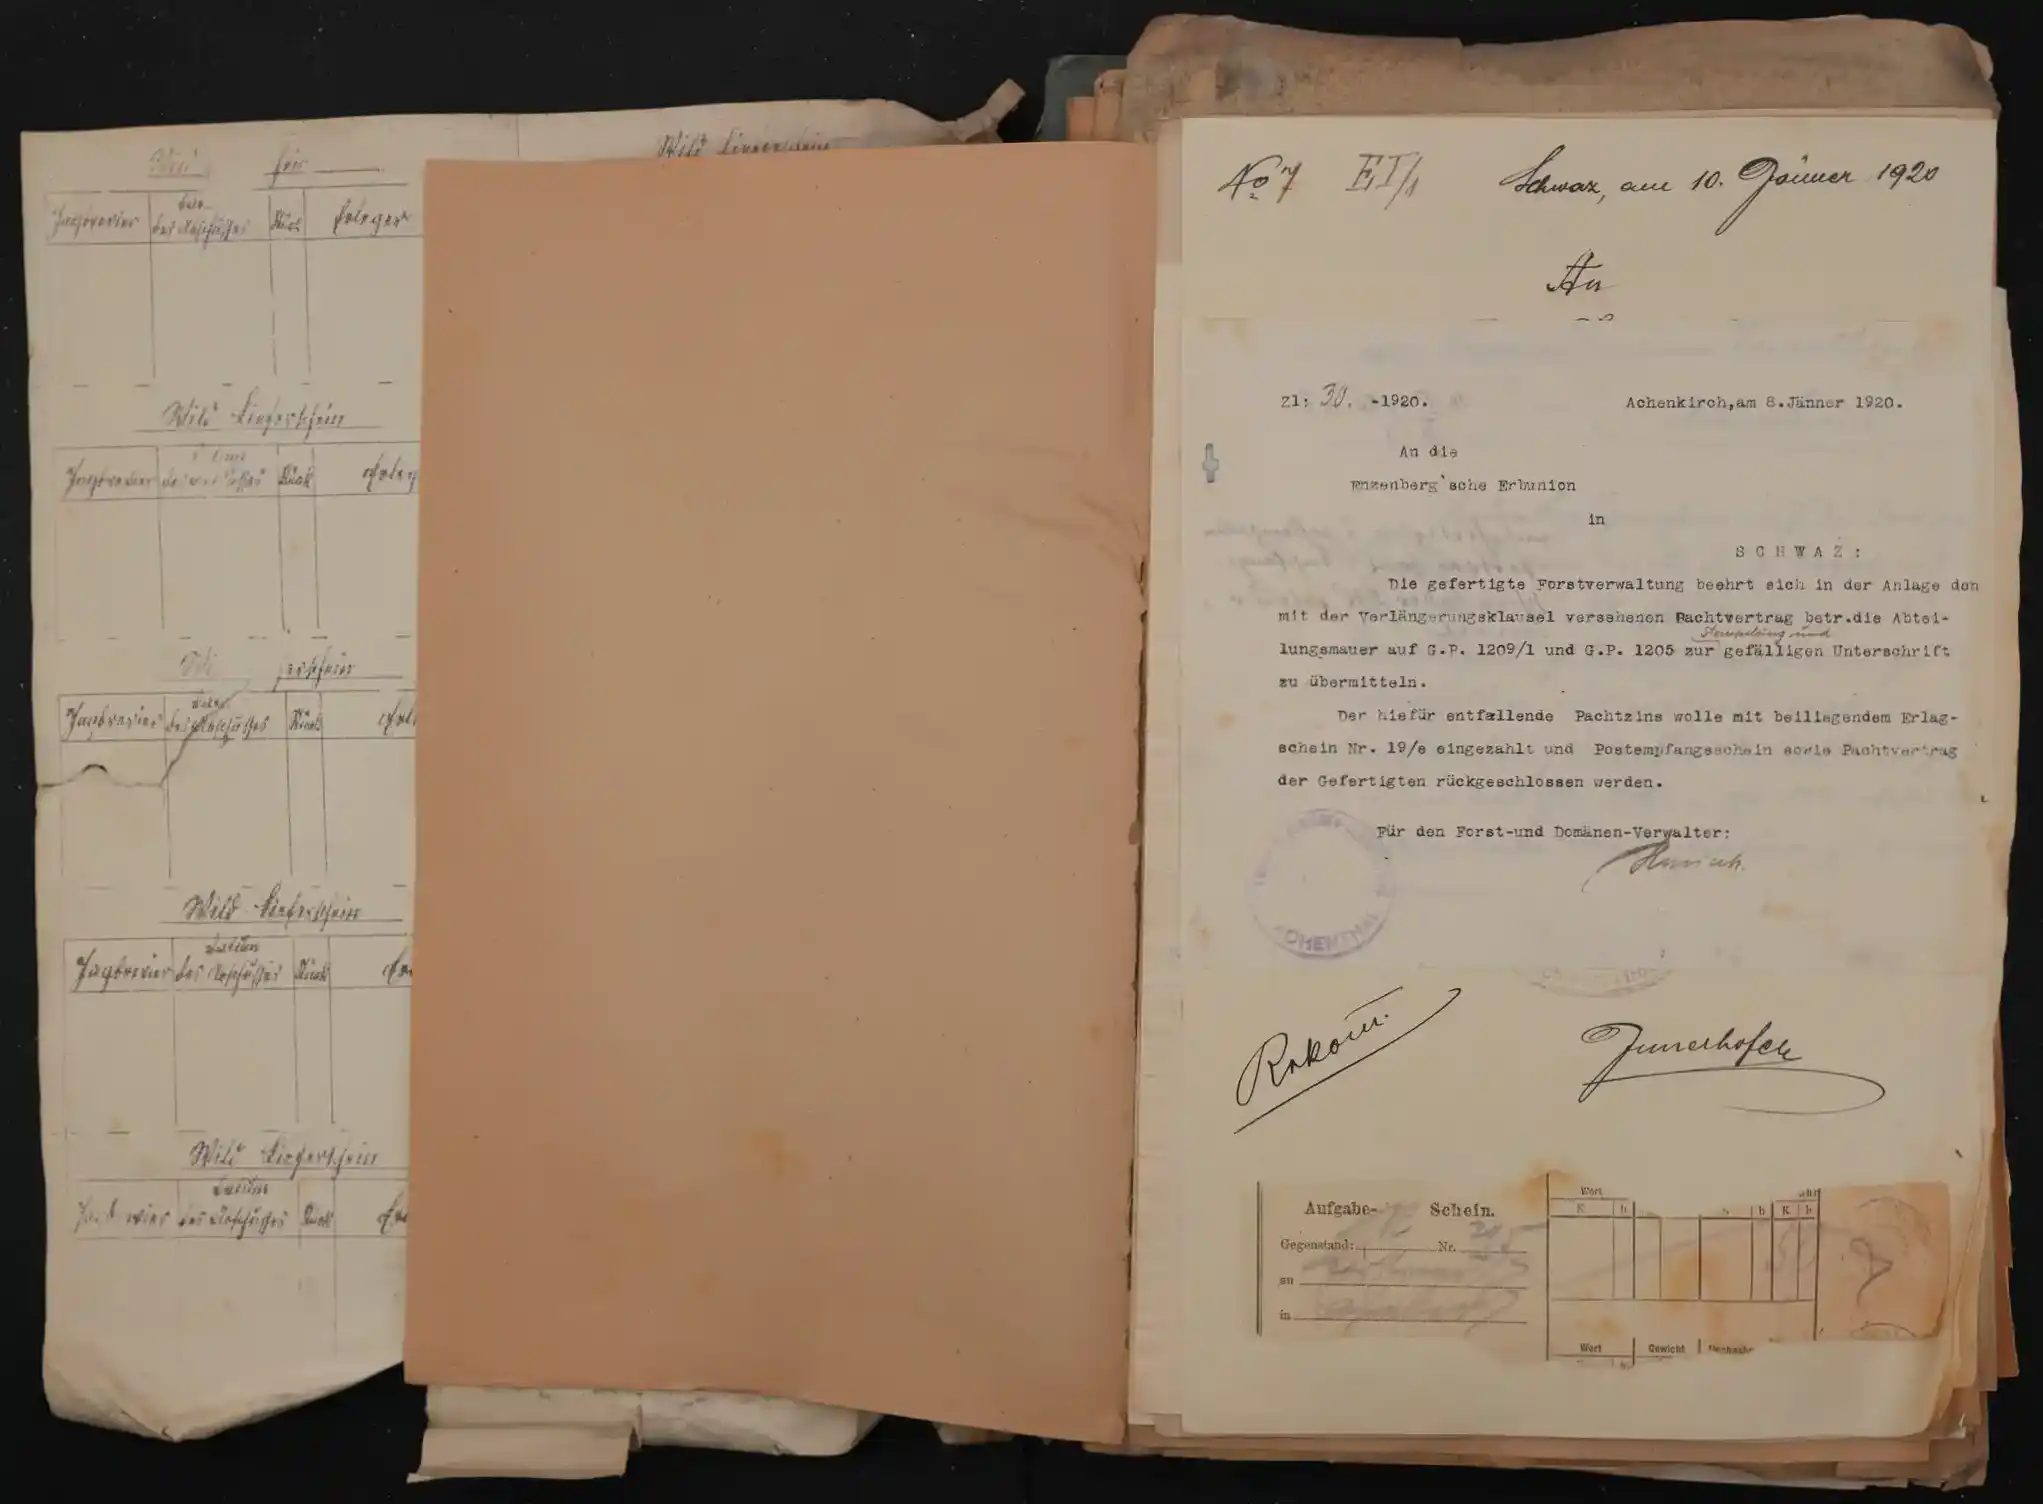 Wild Lieferschein
Jagdrevier des Abschusses Stück Erleger
Wild Lieferschein
Jagdrevier des Abschusses Stück
Jagdrevier des Abschusses Stück
Wild Lieferschein
Jagdrevier Datum des Abschusses Stück
Wild Lieferschein
Datum des Abschusses Stück
No 7 EI/1 Schwaz, am 10. Jänner 1920
An
Zl: 30. -1920. Achenkirch,am 8.Jänner 1920.
An die
Enzenberg'sche Erbunion
in
SCHWAZ:
Die gefertigte Forstverwaltung beehrt sich in der Anlage den
mit der Verlängerungsklausel versehenen Pachtvertrag betr.die Abtei-
Stempelung und
lungsmauer auf G.P. 1209/1 und G.P. 1205 zur gefälligen Unterschrift
zu übermitteln.
Der hiefür entfallende Pachtzins wolle mit beiliegendem Erlag-
schein Nr. 19/e eingezahlt und Postempfangsschein sowie Pachtvertrag
der Gefertigten rückgeschlossen werden.
Für den Forst-und Domänen-Verwalter:
ACHENTHAL
Rekom.
Innerhofer
Aufgabe- Schein.
Gegenstand: Nr.
an
in
Wert
K h h K h
Wert Gewicht Nachnahm